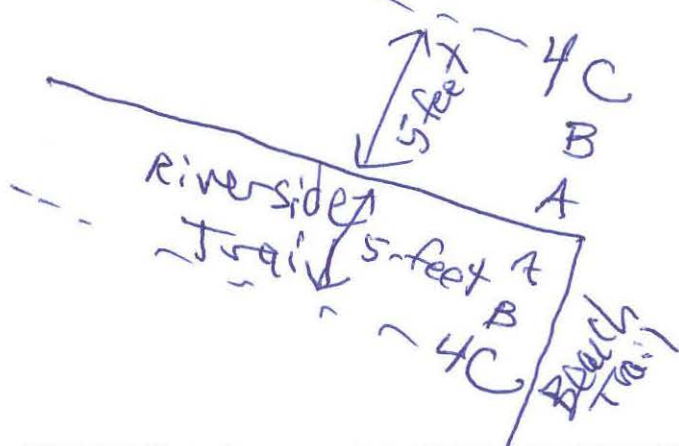 5 feet
4C
B
A
Riverside
Trail
5-feet A
B
4C
Beach
Trail